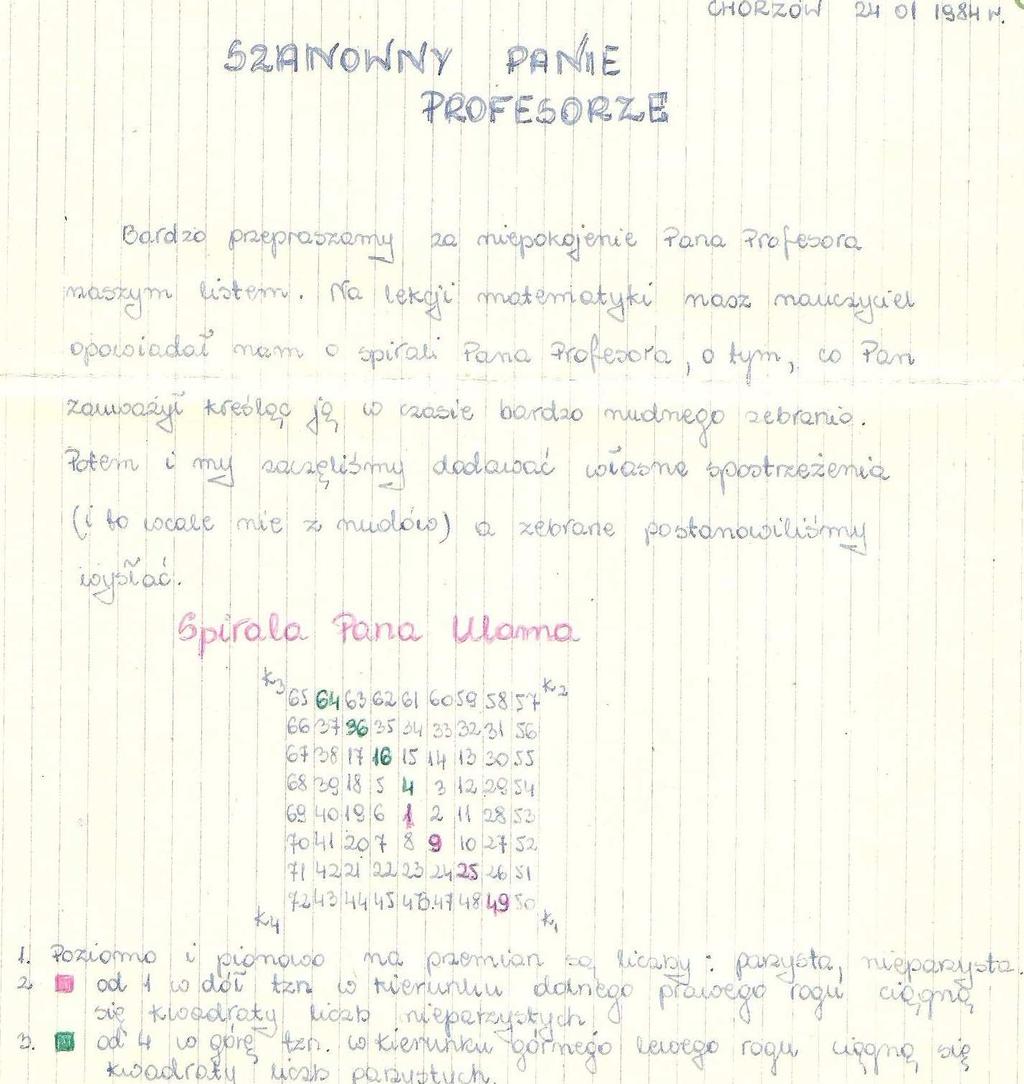 CHORZÓW 24 01 1984 r.
SZANOWNY PANIE
PROFESORZE
Bardzo przepraszamy za niepokojenie Pana Profesora
naszym listem. Na lekcji matematyki nasz nauczyciel
opowiadał nam o spirali Pana Profesora, o tym, co Pan
zauważył kreśląc ją w czasie bardzo nudnego zebrania.
Potem i my zaczęliśmy dodawać własne spostrzeżenia
(i to wcale nie z nudów) a zebrane postanowiliśmy
wysłać.
Spirala Pana Ulama
K3 65 64 63 62 61 60 59 58 57 K2
66 37 36 35 34 33 32 31 56
67 38 17 16 15 14 13 30 55
68 39 18 5 4 3 12 29 54
69 40 19 6 1 2 11 28 53
70 41 20 7 8 9 10 27 52
71 42 21 22 23 24 25 26 51
72 43 44 45 46 47 48 49 50
K4 K1
1. Poziomo i pionowo na przemian są liczby: parzysta, nieparzysta.
2. od 1 w dół tzn w kierunku dolnego prawego rogu ciągną
się kwadraty liczb nieparzystych
3. od 4 w górę tzn. w kierunku górnego lewego rogu ciągną się
kwadraty liczb parzystych.